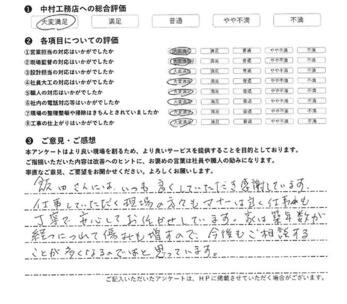 ❶ 中村工務店への総合評価
大変満足 満足 普通 やや不満 不満
❷ 各項目についての評価
①営業担当の対応はいかがでしたか 大変満足 満足 普通 やや不満 不満
②現場監督の対応はいかがでしたか 大変満足 満足 普通 やや不満 不満
③設計担当の対応はいかがでしたか 大変満足 満足 普通 やや不満 不満
④社員大工の対応はいかがでしたか 大変満足 満足 普通 やや不満 不満
⑤職人の対応はいかがでしたか 大変満足 満足 普通 やや不満 不満
⑥社内の電話対応等はいかがでしたか 大変満足 満足 普通 やや不満 不満
⑦現場の整理整頓や掃除はきちんとされていましたか 大変満足 満足 普通 やや不満 不満
⑧工事の仕上がりはいかがでしたか 大変満足 満足 普通 やや不満 不満
❸ ご意見・ご感想
本アンケートはより良い現場を創るため、より良いサービスを提供することを目的としております。
ご指摘いただいた内容は改善へのヒントに、お褒めの言葉は社員や職人の励みになります。
率直なご意見、ご要望をお聞かせください。よろしくお願いします。
飯田さんには、いつも良くしていただき感謝しています。
仕事していただく現場の方々もマナーは良く仕事も
丁寧で安心してお任せしています。家は築年数が
経つにつれて傷みも増すので、今後もご相談する
ことが多くなるのではと思っています。
ご記入いただいたアンケートは、HPに掲載させていただく場合がございます。